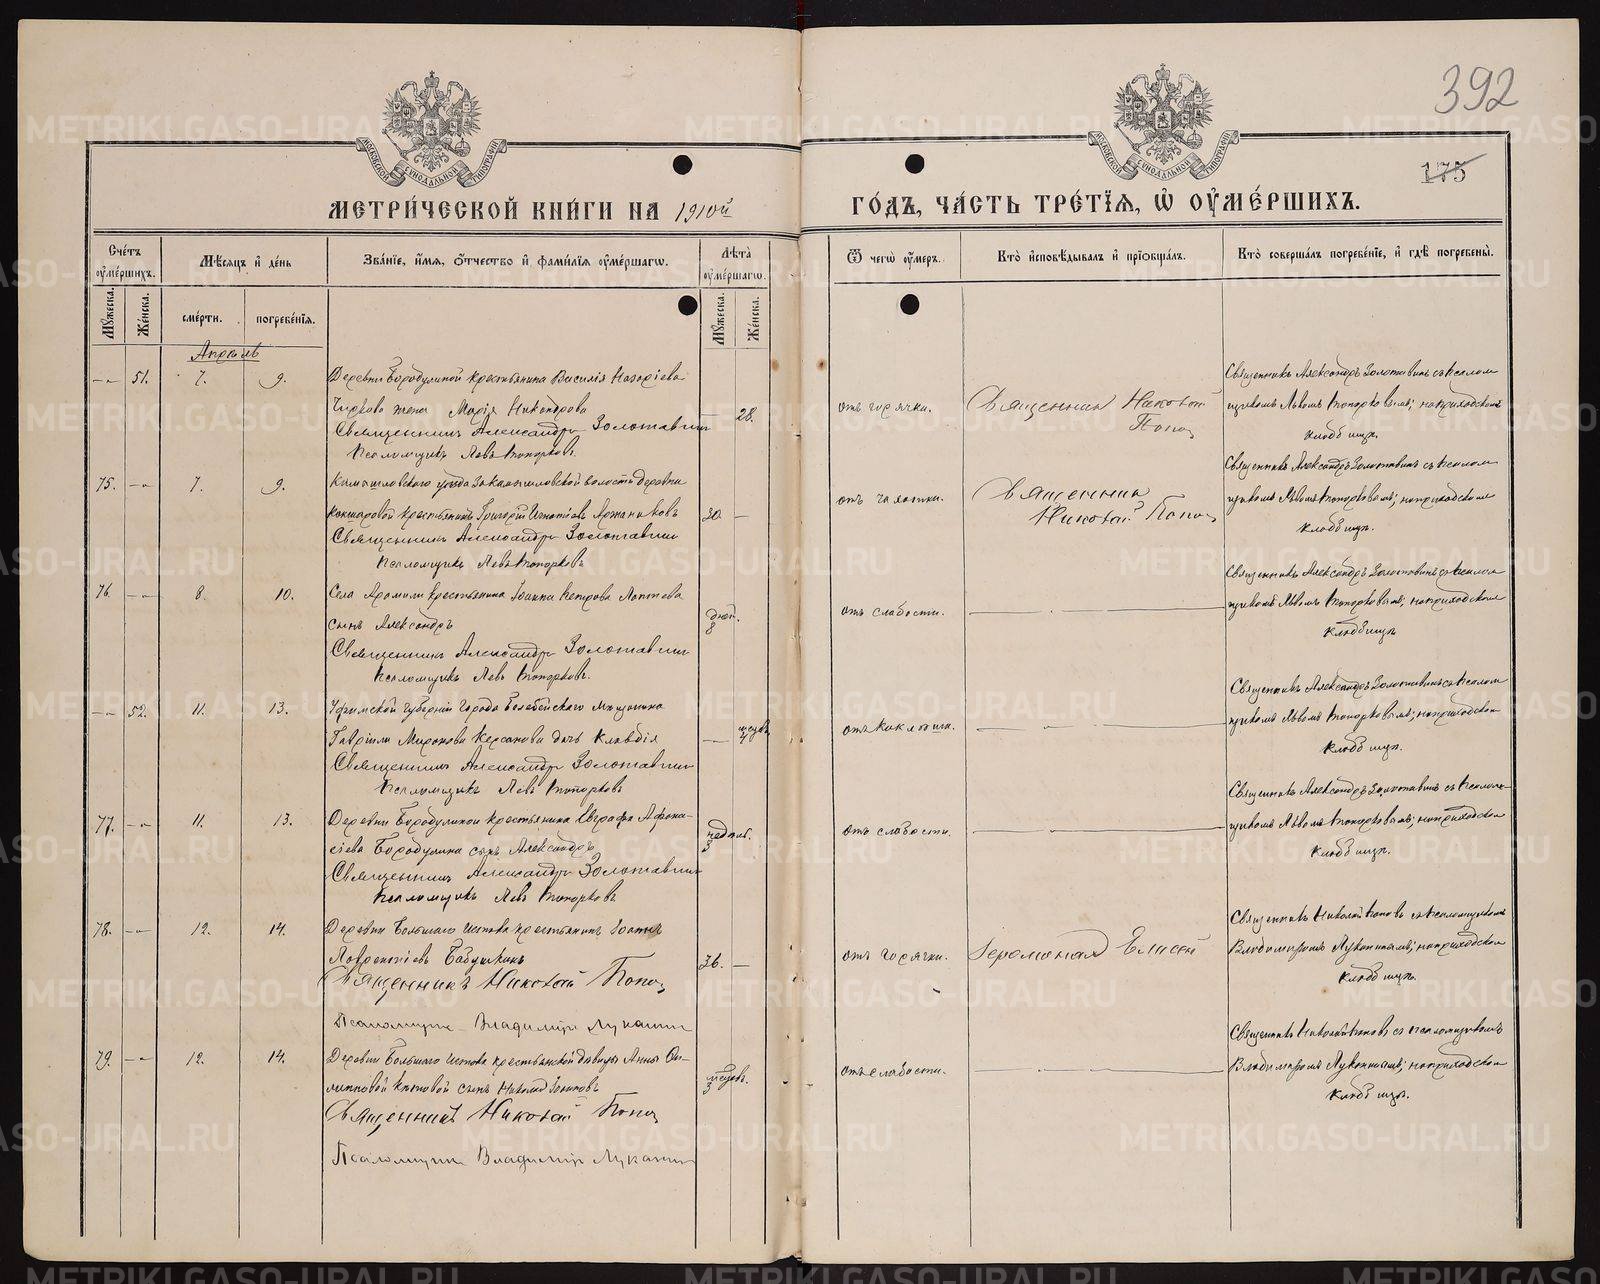 392
175
МОСКОВСКОЙ СѴНОДАЛЬНОЙ ТИПОГРАФІИ
МОСКОВСКОЙ СѴНОДАЛЬНОЙ ТИПОГРАФІИ
МЕТРИ́ЧЕСКОЙ КНИ́ГИ НА 1910й
ГО́ДЪ, ЧА́СТЬ ТРЕ́ТІѦ, Ѡ҆ ОУ҆МЕ́РШИХЪ.
Сче́тъ оу҆ме́ршихъ.
Мѣ́сѧцъ и҆ де́нь
Зва́нїе, и҆́мѧ, ѻ҆́тчество и҆ фами́лїѧ оу҆ме́ршагѡ.
Лѣ́та оу҆ме́ршагѡ.
Ѿ чегѡ̀ оу҆́меръ.
Кто̀ и҆сповѣ́дывалъ и҆ прїѡбща́лъ.
Кто̀ соверша́лъ погребе́нїе, и҆ гдѣ̀ погребены̀.
Мꙋ́жеска.
Же́нска.
сме́рти.
погребе́нїѧ.
Мꙋ́жеска.
Же́нска.
Апрѣль
51. 7. 9. Деревни Бородулиной крестьянина Василія Назаріева
Чиркова жена Марія Никандрова
28.
Священникъ Александръ Золотавинъ
Псаломщикъ Левъ Топорковъ.
отъ горячки.
Священникъ Николай
Поповъ
Священникъ Александръ Золотавинъ съ псалом
щикомъ Львомъ Топорковымъ; на приходскомъ
кладбищѣ.
75. 7. 9. Камышловскаго уѣзда Закамышловской волости деревни
Кокшаровой крестьянинъ Григорій Игнатіевъ
30.
Священникъ Александръ Золотавинъ
Псаломщикъ Левъ Топорковъ
отъ чахотки.
Священникъ
Николай Поповъ
Священникъ Александръ Золотавинъ съ псалом
щикомъ Львомъ Топорковымъ; на приходскомъ
кладбищѣ.
76. 8. 10. Села Арамили крестьянина Іоанна Петрова Лаптева
сынъ Александръ
дней.
8
Священникъ Александръ Золотавинъ
Псаломщикъ Левъ Топорковъ.
отъ слабости.
Священникъ Александръ Золотавинъ съ псалом
щикомъ Львомъ Топорковымъ; на приходскомъ
кладбищѣ
52. 11. 13. Уфимской губерніи города Белебейскаго мѣщанина
Гавріила Миронова дочь Клавдія
мѣсяцев.
Священникъ Александръ Золотавинъ
Псаломщикъ Левъ Топорковъ
отъ коклюша.
Священникъ Александръ Золотавинъ съ псалом
щикомъ Львомъ Топорковымъ; на приходскомъ
кладбищѣ.
77. 11. 13. Деревни Бородулиной крестьянина Евграфа Афана-
сіева Бородулина сынъ Александръ
недѣль.
3
Священникъ Александръ Золотавинъ
Псаломщикъ Левъ Топорковъ
отъ слабости.
Священникъ Александръ Золотавинъ съ псалом-
щикомъ Львомъ Топорковымъ; на приходском
кладбищѣ.
78. 12. 14. Деревни Большаго Истока крестьянинъ Іоаннъ
Лаврентіевъ Бабушкинъ
36.
Священникъ Николай Поповъ
Псаломщикъ Владиміръ Луканинъ
отъ горячки.
Іеромонахъ Елисей
Священникъ Николай Поповъ съ псаломщикомъ
Владиміромъ Луканинымъ; на приходском
кладбищѣ.
79. 12. 14. Деревни Большаго Истока крестьянской дѣвицы Анны
сынъ Николай
мѣсяцев.
3
Священникъ Николай Поповъ
Псаломщикъ Владиміръ Луканинъ
отъ слабости.
Священникъ Николай Поповъ съ псаломщикомъ
Владиміромъ Луканинымъ; на приходском
кладбищѣ.
METRIKI.GASO-URAL.RU